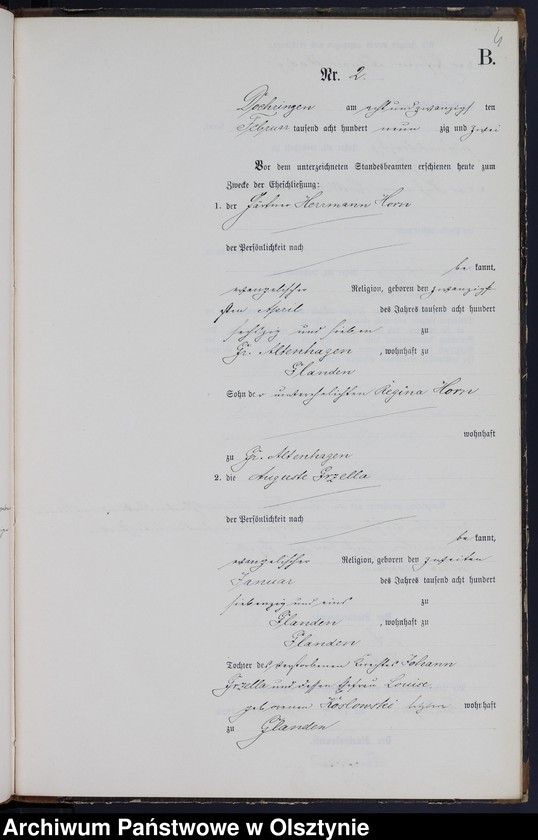 4
B.
Nr. 2.
Doehringen am acht und zwanzigsten
Februar tausend acht hundert neun zig und zwei
Vor dem unterzeichneten Standesbeamten erschienen heute zum
Zwecke der Eheschließung:
1. der Gärtner Herrmann Horn
der Persönlichkeit nach
be kannt,
evangelischer Religion, geboren den zwanzig
sten April des Jahres tausend acht hundert
sechszig und sieben zu
Gr. Altenhagen, wohnhaft zu
Glanden
Sohn der unverehelichten Regina Horn
wohnhaft
zu Gr. Altenhagen
2. die Auguste Grzella
der Persönlichkeit nach
be kannt,
evangelischer Religion, geboren den zweiten
Januar des Jahres tausend acht hundert
siebenzig und eins zu
Glanden, wohnhaft zu
Glanden
Tochter des verstorbenen Knechts Johann
Grzella und dessen Ehefrau Louise
geborenen Koslowski letztere wohnhaft
zu Glanden
Archiwum Państwowe w Olsztynie